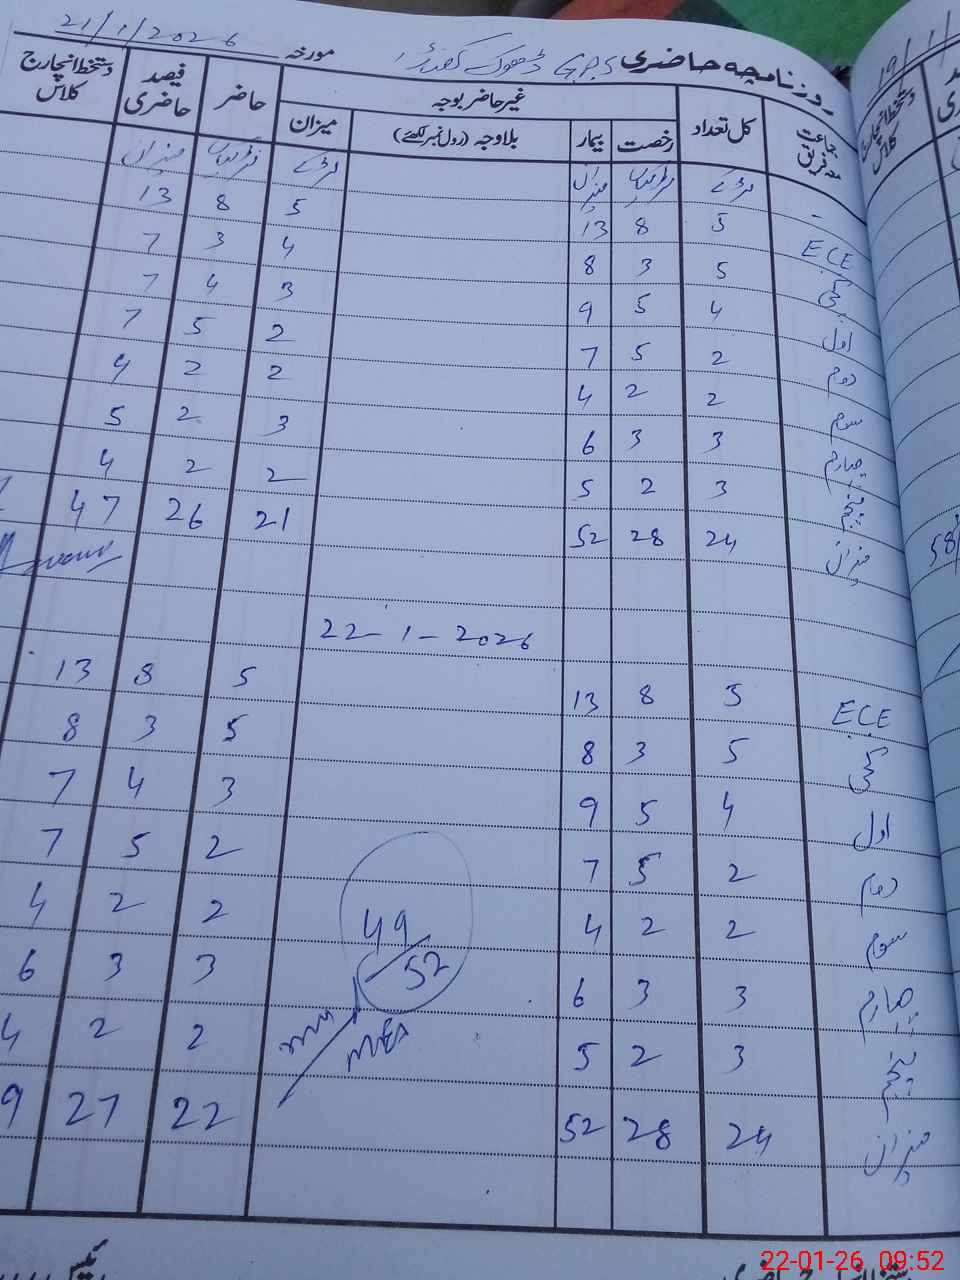 روزنامچہ حاضری ڈھوک کھنڈر مورخہ 21/1/2026
جماعت معہ فریق کل تعداد غیر حاضر بوجہ حاضر فیصد حاضری دستخط انچارج کلاس
رخصت بیمار بلاوجہ (رول نمبر لکھئے) میزان
لڑکے لڑکیاں میزان لڑکے لڑکیاں میزان
ECE 5 8 13 5 8 13
کچی 5 3 8 4 3 7
اول 4 5 9 3 4 7
دوم 2 5 7 2 5 7
سوم 2 2 4 2 2 4
چہارم 3 3 6 3 2 5
پنجم 3 2 5 2 2 4
میزان 24 28 52 21 26 47
22-1-2026
ECE 5 8 13 5 8 13
کچی 5 3 8 5 3 8
اول 4 5 9 3 4 7
دوم 2 5 7 2 5 7
سوم 2 2 4 2 2 4
چہارم 3 3 6 3 3 6
پنجم 3 2 5 2 2 4
میزان 24 28 52 22 27 9
49/52
22-01-26 09:52